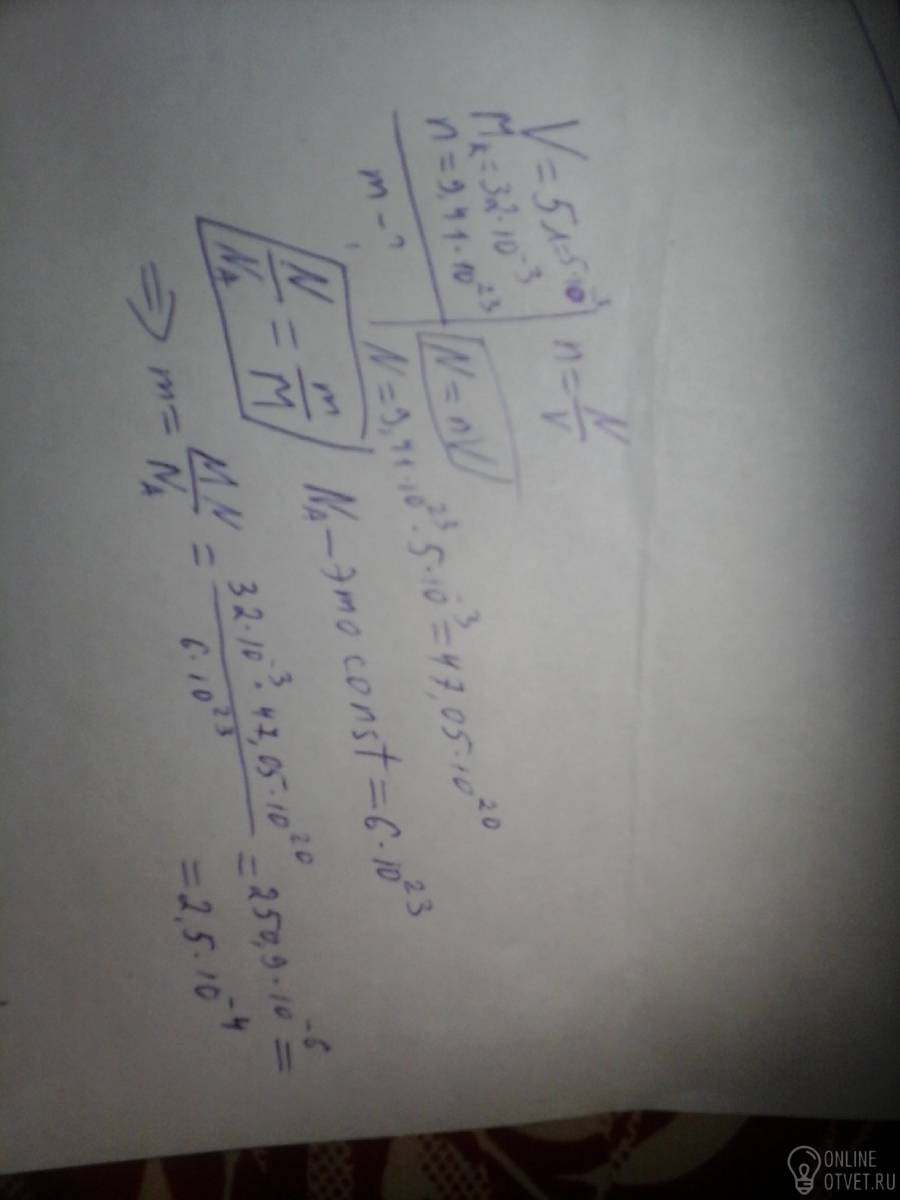 V = 5л = 5·10⁻³
Mк = 32·10⁻³
n = 9,41·10²³
m - ?
n = N/V
N = nV
N = 9,41·10²³·5·10⁻³ = 47,05·10²⁰
N/Nᴀ = m/M
Nᴀ — это const = 6·10²³
⇒ m = MN/Nᴀ = 32·10⁻³·47,05·10²⁰/6·10²³ = 250,9·10⁻⁶ =
= 2,5·10⁻⁴
ONLINE
OTVET.RU